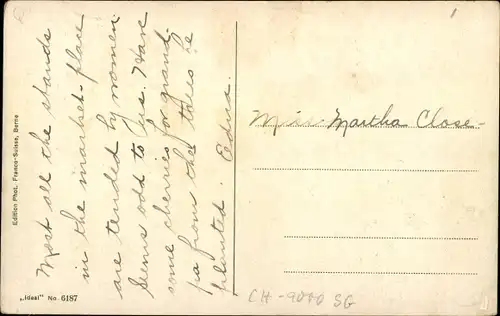 Most all the stands
in the market-place
are tended by women.
Seems odd to us. Have
some cherries for grand-
pa from the trees he
planted.
Miss Martha Close-
Edition Phot. Franco-Suisse, Berne
„Ideal" No. 6187
CH-9000 SG
1